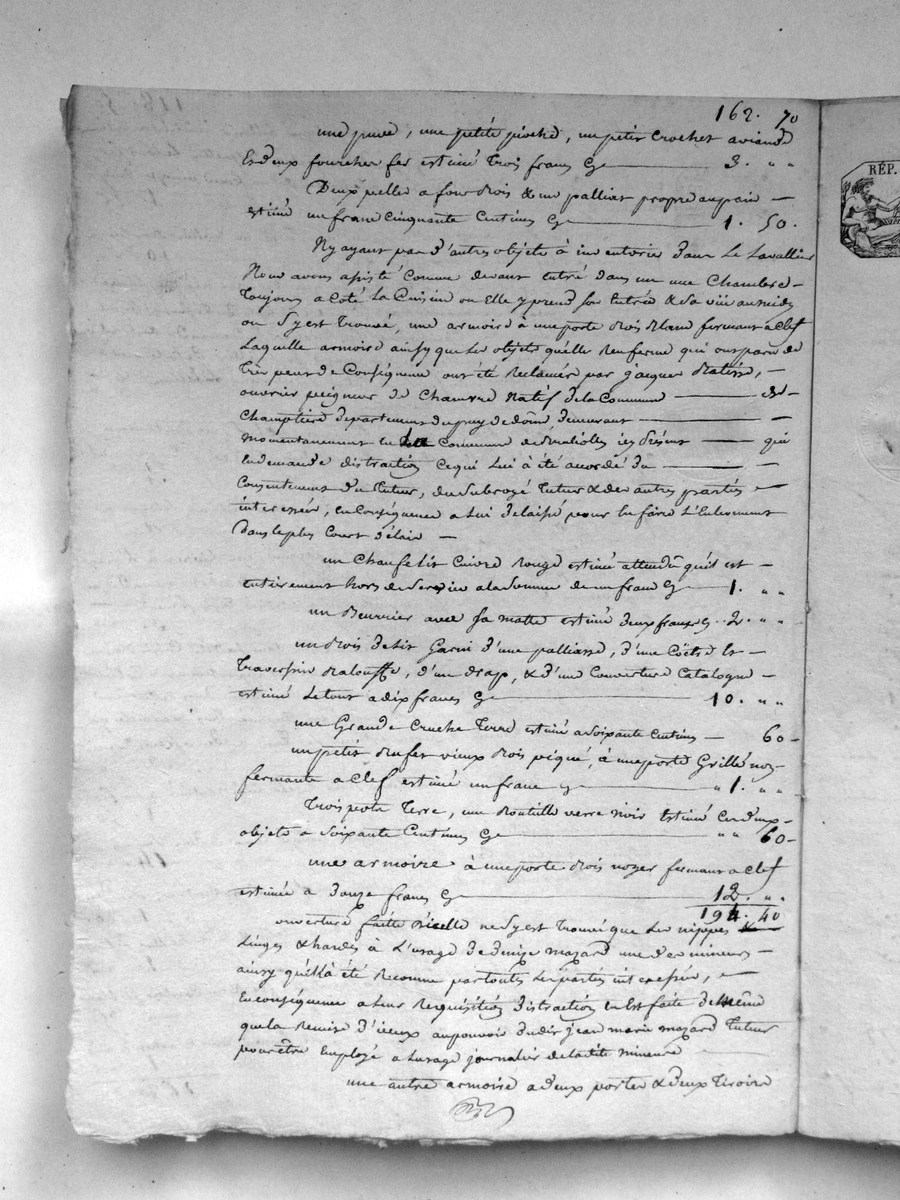 162. 70
une , une petite pioche, un petit Crochet
Et deux fourches fer estimé trois francs Cy 3. " "
Deux pelle a four Bois & un palliat propre au pain
estimé un franc Cinquante Centimes Cy 1. 50.
Ny ayant pas d'autres objets à inventorié dans Le
Nous avons assisté Comme devant Entré dans une Chambre
Toujours a Coté La Cuisine ou Elle y prend son Entrée & sa vüe au midy
ou S'y est Trouvé, une armoire a une porte Bois Blanc fermant a Clef
Laquelle armoire ainsy que Les objets qu'elle Renferme qui ont paru de
Très peu de Conséquence ont été Reclamés par jacques ,
ouvrier peigneur de Chanvre Natif de la Commune de
departement du puy de dôme, demeurant
momentanement en La Commune de icy présent qui
En demande distraction Ce qui Lui à été accordé du
Consentement du Tuteur, du Subrogé Tuteur & des autres parties
interessées, en Conséquence a Lui delaissé pour En faire L'Enlevement
Dans le plus Court délais
un Chaufelit Cuivre Rouge estimé attendû qu'il est
entierement hors de Service a la Somme de un franc Cy 1. " "
un Beurrier avec Sa estimé deux francs Cy 2. " "
un Bois de Lit Garni d'une palliasse, d'une Coëtre Et
Traversin Balouffe, d'un drap, & d'une Couverture Catalogne
estimé Le tout a dix francs Cy 10. " "
une Grande Cruche Terre estimée a Soixante Centimes 60
un petit Bufet vieux Bois piqué, à une porte Grillé
fermante a Clef estimé un franc Cy " 1. " "
Trois pots Terre, une Bouteille verre noir Estimé Ces deux
objets a Soixante Centimes Cy " " 60
une armoire à une porte Bois noyer fermant a Clef
estimée a douze francs Cy 12. " "
194. 40
ouverture faitte d'icelle ne S'y est Trouvé que Les nippes
Linges & hardes à L'usage de denize mazard une des mineures
ainsy qu'il à été Reconnu par touts Les parties interessées,
En conséquence a Leur Requisition distraction en Est faite de même
que la Remise d'iceux au pouvoir dudit jean marie mazard Tuteur
pour être Employé a L'usage journalier de la dite mineure
une autre armoire a deux portes & deux Tiroirs
RÉP.